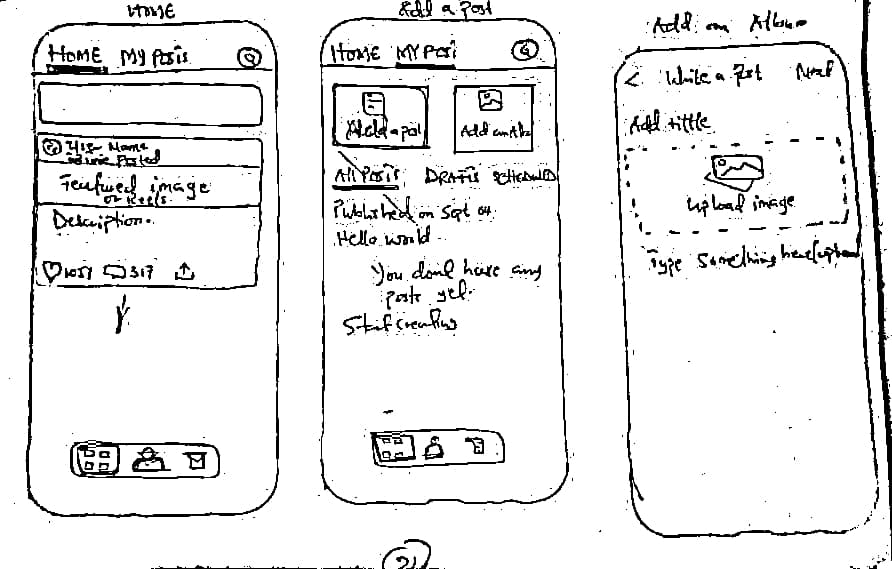 HOME
HOME My Posts
His Name
Time Posted
Featured image
or Reels
Description.
1051 317
Add a Post
HOME MY Post
Add a post
Add an Alb
All Posts DRAFTS SCHEDULED
Published on Sept 04
Hello world
You dont have any
posts yet.
Start creating
Add an Album
< Write a Post Next
Add tittle
Upload image
Type Something here
2